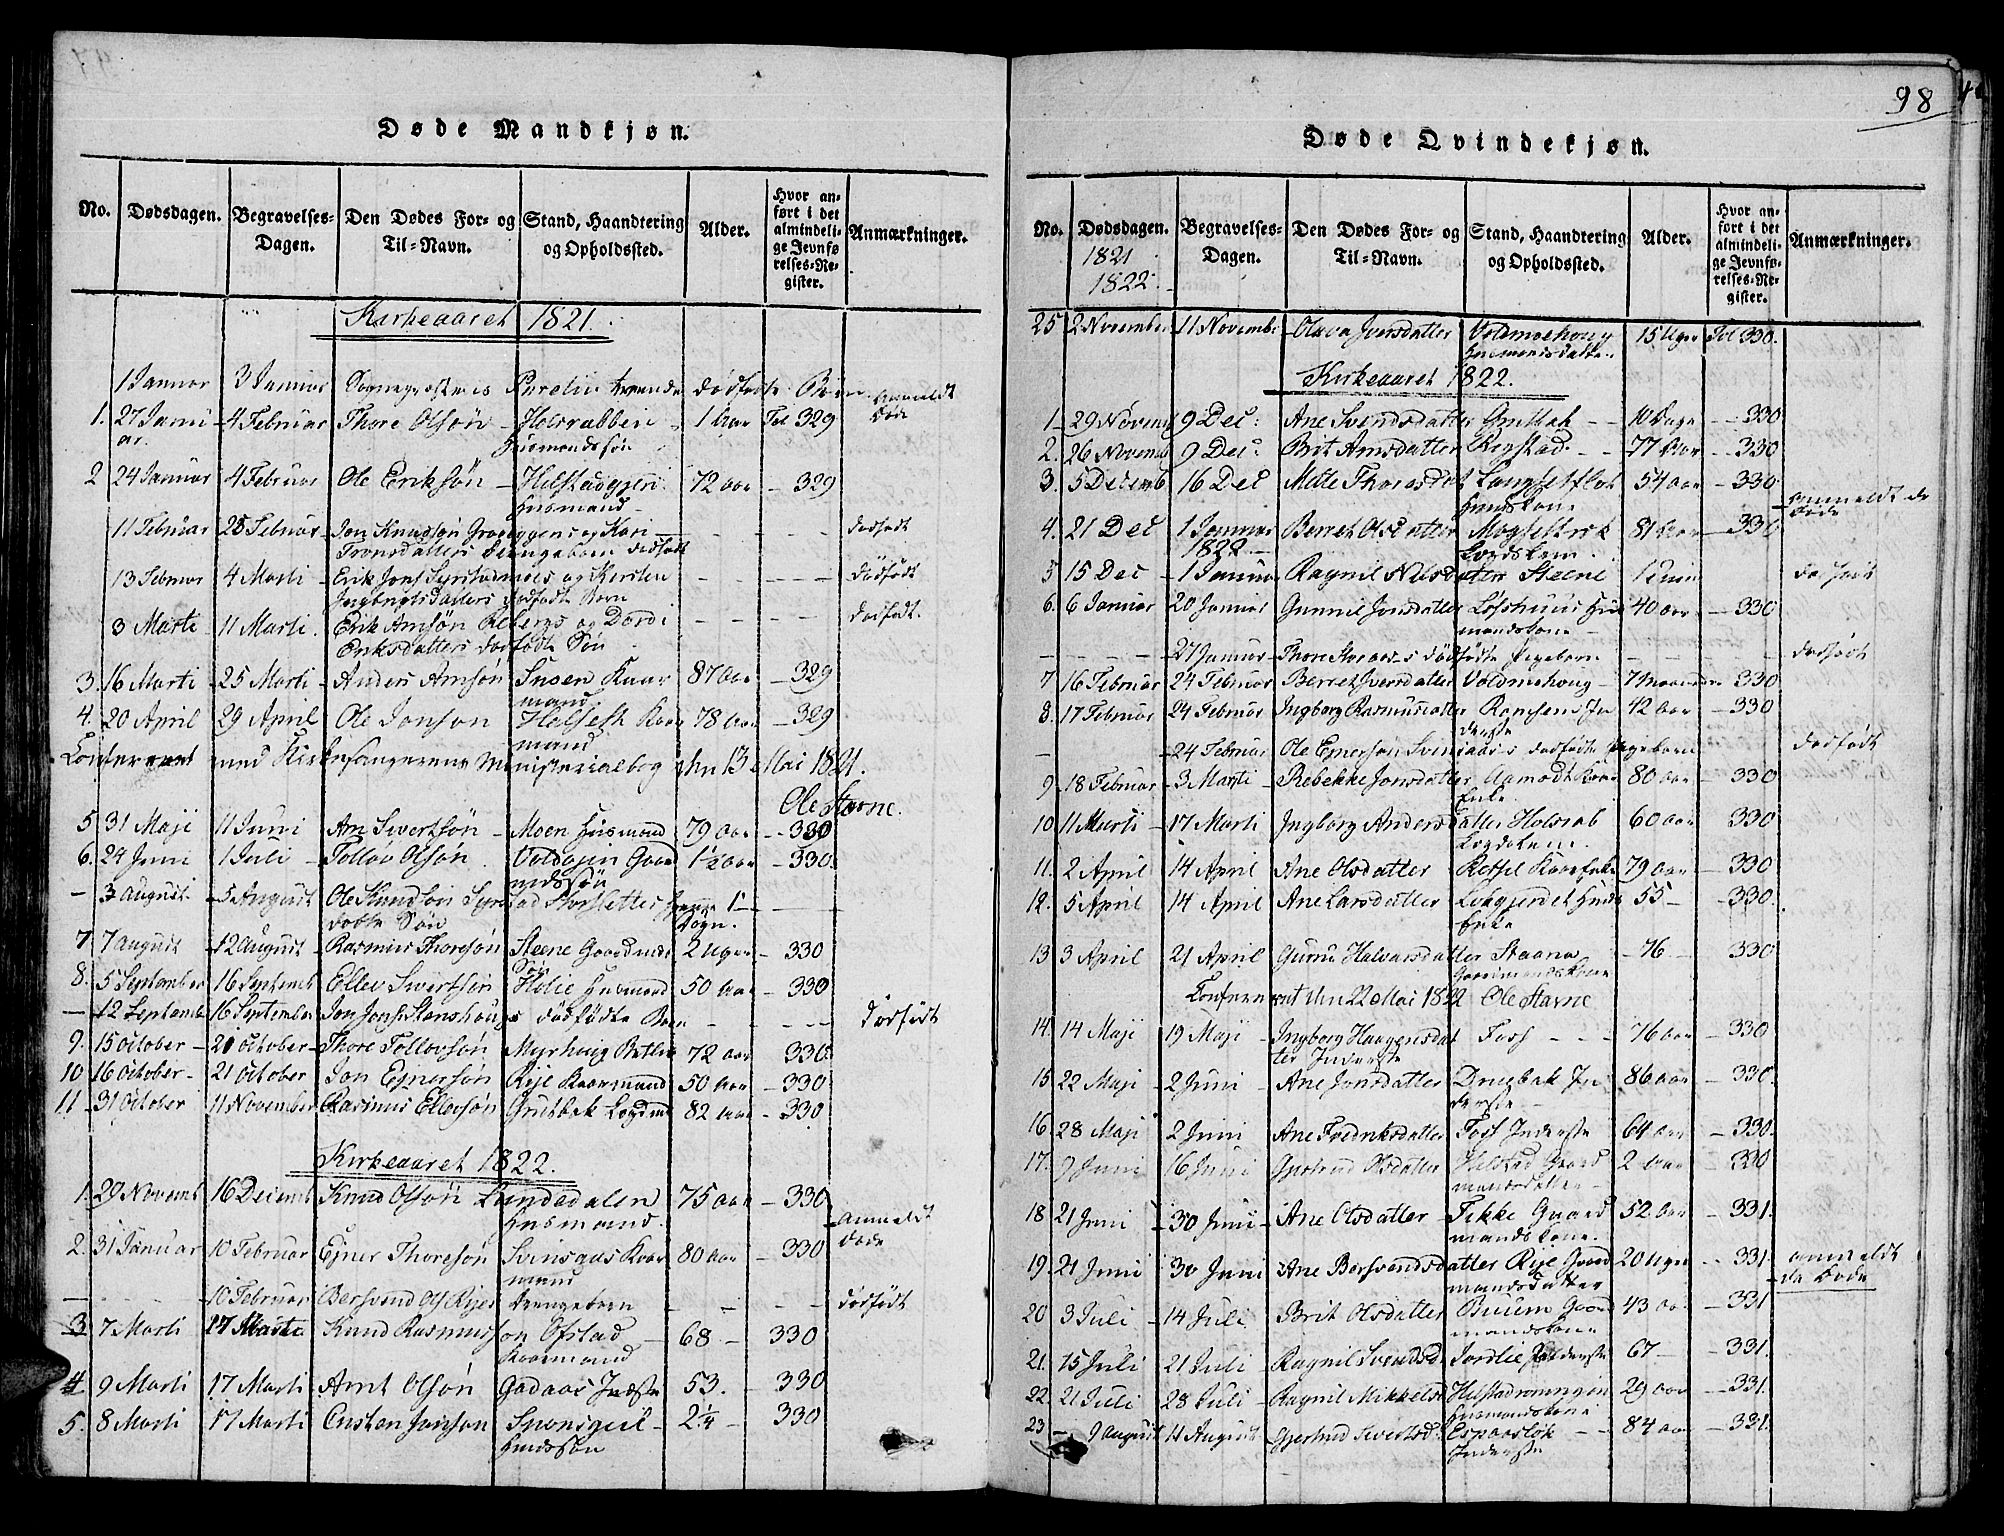 98
Døde Mandkjøn.
No. Dødsdagen. Begravelses-Dagen. Den Dødes For- og Til-Navn. Stand, Haandtering og Opholdssted. Alder. Hvor anført i det almindelige Jevnførelses-Register. Anmærkninger.
Kirkeaaret 1821.
1 Januar 3 Januar dødfødte Børn
1. 27 Januar 4 Februar Thore Olsøn Holsrabben Husmandssøn 1 Aar Fol 329 anmeldt Døde
2 24 Januar 4 Februar Ole Eriksøn Husmand 72 Aar 329
11 Februar 25 Februar Jon Knudsøn og Kari Tronsdatters Drengebarn dødfødt dødfødt
13 Februar 4 Marti Erik Jons og Kersten Ingbrigtsdatters dødfødte Barn dødfødt
3 Marti 11 Marti Erik Arnsøn Rebergs og Dordi Eriksdatters dødfødte Søn dødfødt.
3. 16 Marti 25 Marti Anders Arnsøn Kaarmand 87 Aar 329
4. 20 April 29 April Ole Jonsøn Holseth Kaarmand 78 Aar 329
Confereret med Kirkesangerens Ministerialbog den 13 Mai 1821.
Ole Stavne.
5 31 Maji 11 Juni Arn Sivertsøn Moen Husmand 79 Aar 330
6. 24 Juni 1 Juli Tollov Olsøn Gaardmdssøn 1½ Aar 330.
3 August 5 August Ole Knudsøn Sogn.
7 7 August 12 August Rasmus Thoresøn Steene Gaardmds Søn 2 Uger 330
8. 5 September 16 Septemb Ellev Sivertsøn Holie Husmand 50 Aar 330
12 Septemb 16 September Jon Jons Stenshougs dødfødte Barn dødfødt
9. 15 October 21 October Thore Tollovsøn Myrhoug 72 Aar 330.
10 16 October 21 October Jon Ejnersøn Rije Kaarmand 50 Aar 330
11. 31 October 11 November Rasmus Ellevsøn Grutbak Legdmd 82 Aar 330.
Kirkeaaret 1822.
1. 29 Novemb 16 Decemb Knud Olsøn Lundedalen Husmand. 75 Aar 330
2. 31 Januar 10 Februar Ejner Thoresøn Svinsaas Kaarmand 80 Aar 330 anmeldt Døde
10 Februar Bersvend Ols Rijes Drengebarn dødfødt
3 7 Marti 17 Marti Knud Rasmussøn Ofstad Kaarmand 68 330
4 9 Marti 17 Marti Arnt Olsøn Gadaas 53. 330
5. 8 Marti 17 Marti 2¼ 330
Døde Qvindekjøn.
No. Dødsdagen. 1821 1822. Begravelses-Dagen. Den Dødes For- og Til-Navn. Stand, Haandtering og Opholdssted. Alder. Hvor anført i det almindelige Jevnførelses-Register. Anmærkninger.
25 2 November 11 Novembr Olava Iversdatter Voldmoehoug Husmandsdatter 15 Uger Fol 330.
Kirkeaaret 1822.
1 29 Novemb 9 Dec: Ane Svendsdatter Grutbak 10 Dage 330
2. 26 Novemb 9 Dec: Brit Arnsdatter Regstad 77 Aar 330
3. 5 Decemb 16 Dec Mette Thoresdat Langsetflot Husmdskone 54 Aar 330 anmeldt de Døde
4. 21 Dec 1 Januar 1822 Berret Olsdatter Mogseth Legdslem 81 Aar 330
5 15 Dec 1 Januar Ragnil Nilsdatter Steene dødfødt
6. 6 Januar 20 Januar Gunnil Jonsdatter Løshuus Husmandskone 40 Aar 330
27 Januar Thore dødfødte Pigebarn dødfødt
7 16 Februar 24 Februar Berret Iversdatter Voldmohoug 7 Maaneder 330
8. 17 Februar 24 Februar Ingborg Rasmusdatter Inderste 42 Aar 330
24 Februar Ole Ejnersøn Svinsaas dødfødte Pigebarn dødfødt
9 18 Februar 3 Marti Rebekke Jonsdatter Aamodt Enke 80 Aar 330
10 11 Marti 17 Marti Ingborg Andersdatter Holsrab Legdslem. 60 Aar 330
11. 2 April 14 April Ane Olsdatter Kaarenke 79 Aar 330
12. 5 April 14 April Ane Larsdatter Husmds Enke 55 330.
13 3 April 21 April Guru Halvarsdatter Gaardmandskone 76 330
Confereret den 22 Mai 1822 Ole Stavne
14. 14 Maji 19 Maji Ingborg Haagensdatter Inderste Foss 76 Aar 330
15 22 Maji 2 Juni Ane Jonsdatter Drugbak Inderste 86 Aar 330.
16. 28 Maji 2 Juni Ane Fredriksdatter Foss Inderste 64 Aar 330.
17. 9 Juni 16 Juni Gjertrud Olsdatter Hilstad Gaardmandsdatter 2 Aar 330
18. 21 Juni 30 Juni Ane Olsdatter Fikke Gaardmandskone. 52 Aar 331.
19. 21 Juni 30 Juni Ane Bersvendsdatter Rije Gaardmandsdatter 20 Uger 331. anmeldt de Døde
20 3 Juli 14 Juli Brit Olsdatter Gaardmandskone 43 Aar 331
21. 15 Juli 21 Juli Ragnil Svendsd Jordlie Inderste 67 331.
22. 21 Juli 28 Juli Ragnil Mikkelsd Husmandskone 29 Aar 331.
23 9 August 11 August Gjertrud Sivertsd. Inderste 84 Aar 331.